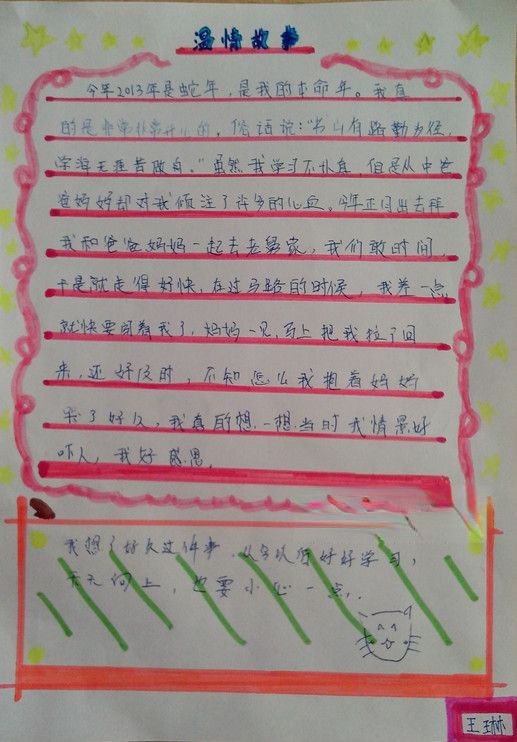 温情故事
今年2013年是蛇年，是我的本命年。我真
的是非常非常开心的，俗话说："书山有路勤为径，
学海无涯苦做舟。"虽然我学习不认真，但是从中爸
爸妈妈却对我倾注了许多的心血。今年正月出去拜
我和爸爸妈妈一起去老舅家，我们敢时间，
于是就走得好快，在过马路的时候，我差一点
就快要闯着我了，妈妈一见，马上把我拉了回
来，还好及时，不知怎么我抱着妈妈
哭了好久，我真的想一想当时我情景好
吓人，我好感恩，
我想了好久这件事，从今以后好好学习，
天天向上，也要小心一点，
王琳